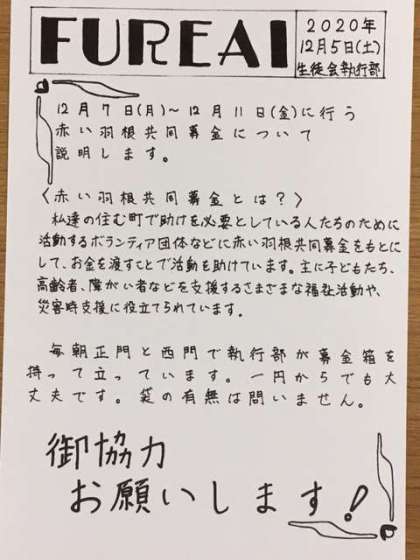 FUREAI
2020年
12月5日(土)
生徒会執行部
12月7日(月)～12月11日(金)に行う
赤い羽根共同募金について
説明します。
〈赤い羽根共同募金とは？〉
私達の住む町で助けを必要としている人たちのために
活動するボランティア団体などに赤い羽根共同募金をもとに
して、お金を渡すことで活動を助けています。主に子どもたち、
高齢者、障がい者などを支援するさまざまな福祉活動や、
災害時支援に役立てられています。
毎朝正門と西門で執行部が募金箱を
持って立っています。一円からでも大
丈夫です。袋の有無は問いません。
御協力
お願いします!